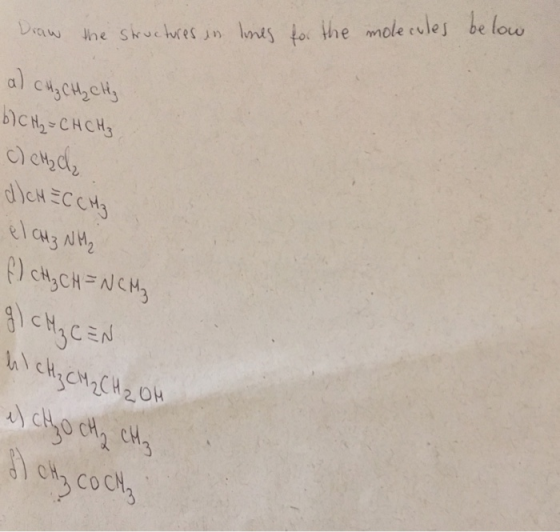 Draw the structures in lines for the molecules below
a) CH₃CH₂CH₃
b) CH₂=CHCH₃
c) CH₂Cl₂
d) CH≡CCH₃
e) CH₃NH₂
f) CH₃CH=NCH₃
g) CH₃C≡N
h) CH₃CH₂CH₂OH
i) CH₃OCH₂CH₃
j) CH₃COCH₃